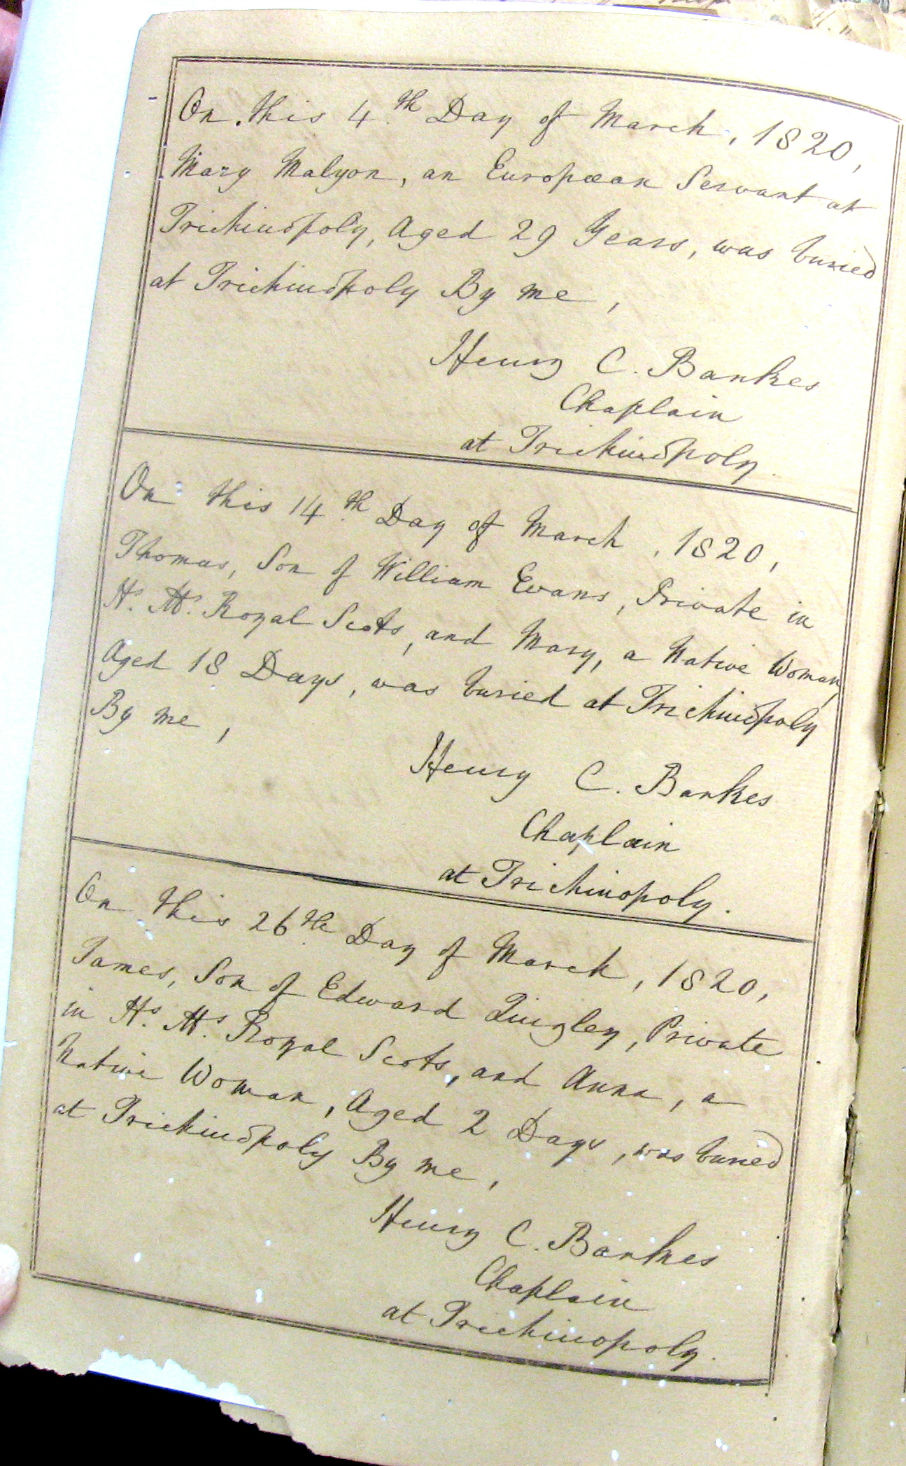 On this 4th Day of March, 1820,
Mary Malyon, an European Servant at
Trichinopoly, Aged 29 Years, was buried
at Trichinopoly By me,
Henry C. Bankes
Chaplain
at Trichinopoly.
On this 14th Day of March, 1820,
Thomas, Son of William Evans, Private in
Hs. Ms. Royal Scots, and Mary, a Native Woman,
Aged 18 Days, was buried at Trichinopoly
By me,
Henry C. Bankes
Chaplain
at Trichinopoly.
On this 26th Day of March, 1820,
James, Son of Edward Quigley, Private
in Hs. Ms. Royal Scots, and Anna, a
Native Woman, Aged 2 Days, was buried
at Trichinopoly By me,
Henry C. Bankes
Chaplain
at Trichinopoly.